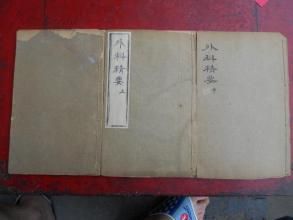 外科精要 上
外科精要 中